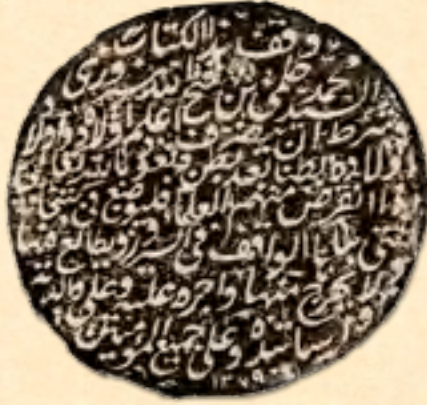 وقف هذا الكتاب
السيد محمد حلمي بن فتح الله سيروزي
وشرط ان يتصرف علماء اولاده واولاد
اولاده بطنا بعد بطن فنعوذ بالله تعالى
اذا انقرض منهم العلماء فليوضع في
بناها الواقف في السيروز ويطالع فيها
ولا يخرج منها واجره عليه وعلى والديه
واساتيذه وعلى جميع المؤمنين
١٢٧٩